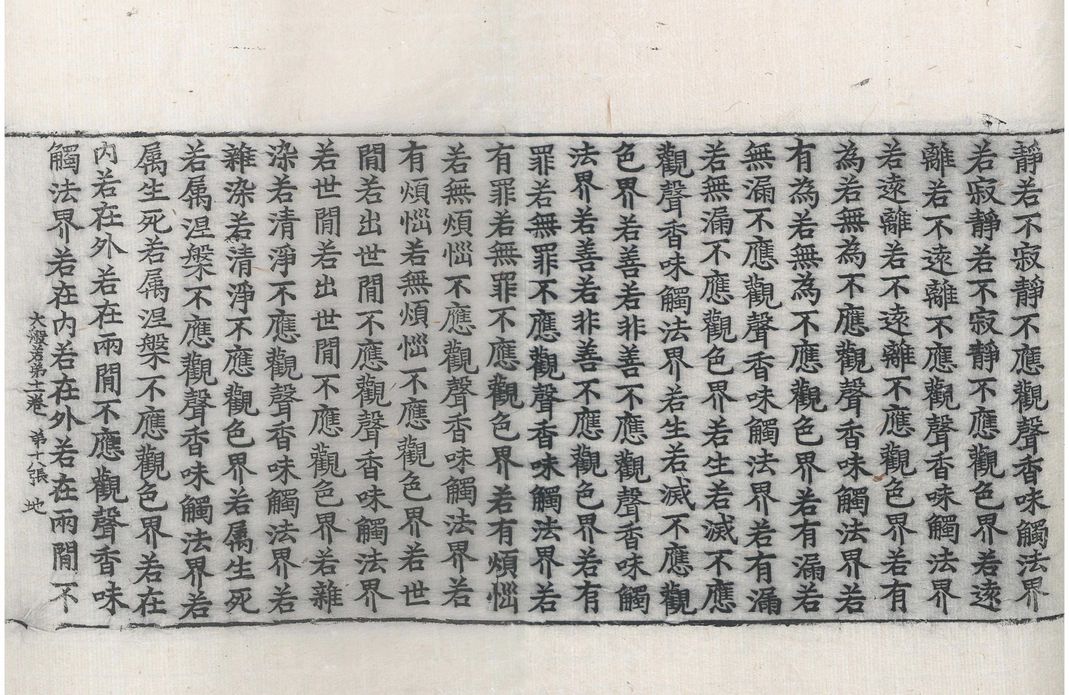 靜若不寂靜不應觀聲香味觸法界
若寂靜若不寂靜不應觀色界若遠
離若不遠離不應觀聲香味觸法界
若遠離若不遠離不應觀色界若有
為若無為不應觀聲香味觸法界若
有為若無為不應觀色界若有漏若
無漏不應觀聲香味觸法界若有漏
若無漏不應觀色界若生若滅不應
觀聲香味觸法界若生若滅不應觀
色界若善若非善不應觀聲香味觸
法界若善若非善不應觀色界若有
罪若無罪不應觀聲香味觸法界若
有罪若無罪不應觀色界若有煩惱
若無煩惱不應觀聲香味觸法界若
有煩惱若無煩惱不應觀色界若世
閒若出世閒不應觀聲香味觸法界
若世閒若出世閒不應觀色界若雜
染若清淨不應觀聲香味觸法界若
雜染若清淨不應觀色界若属生死
若属涅槃不應觀聲香味觸法界若
属生死若属涅槃不應觀色界若在
內若在外若在兩閒不應觀聲香味
觸法界若在內若在外若在兩閒不
大般若第 卷 第 張 地